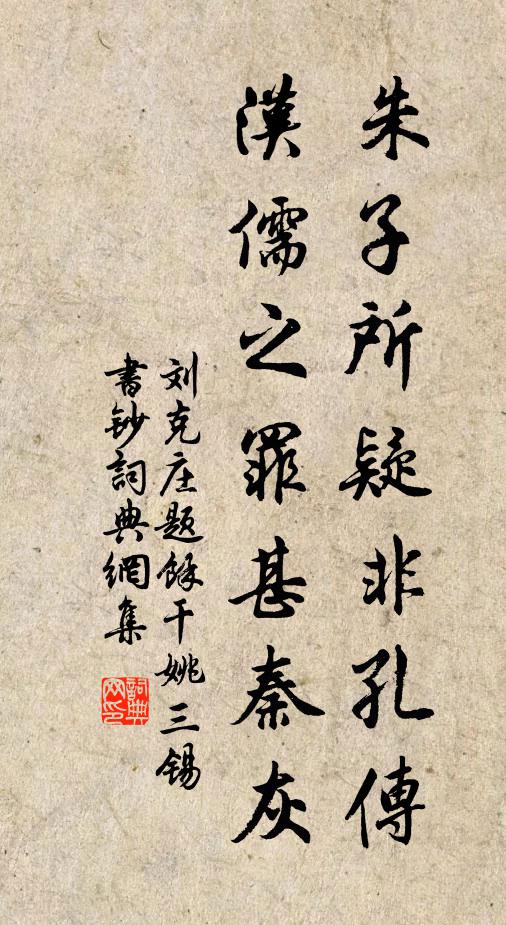 朱子所疑非孔傳
漢儒之罪甚秦灰
刘克庄题餘干姚三锡
書鈔詞典網集
詞典
网印